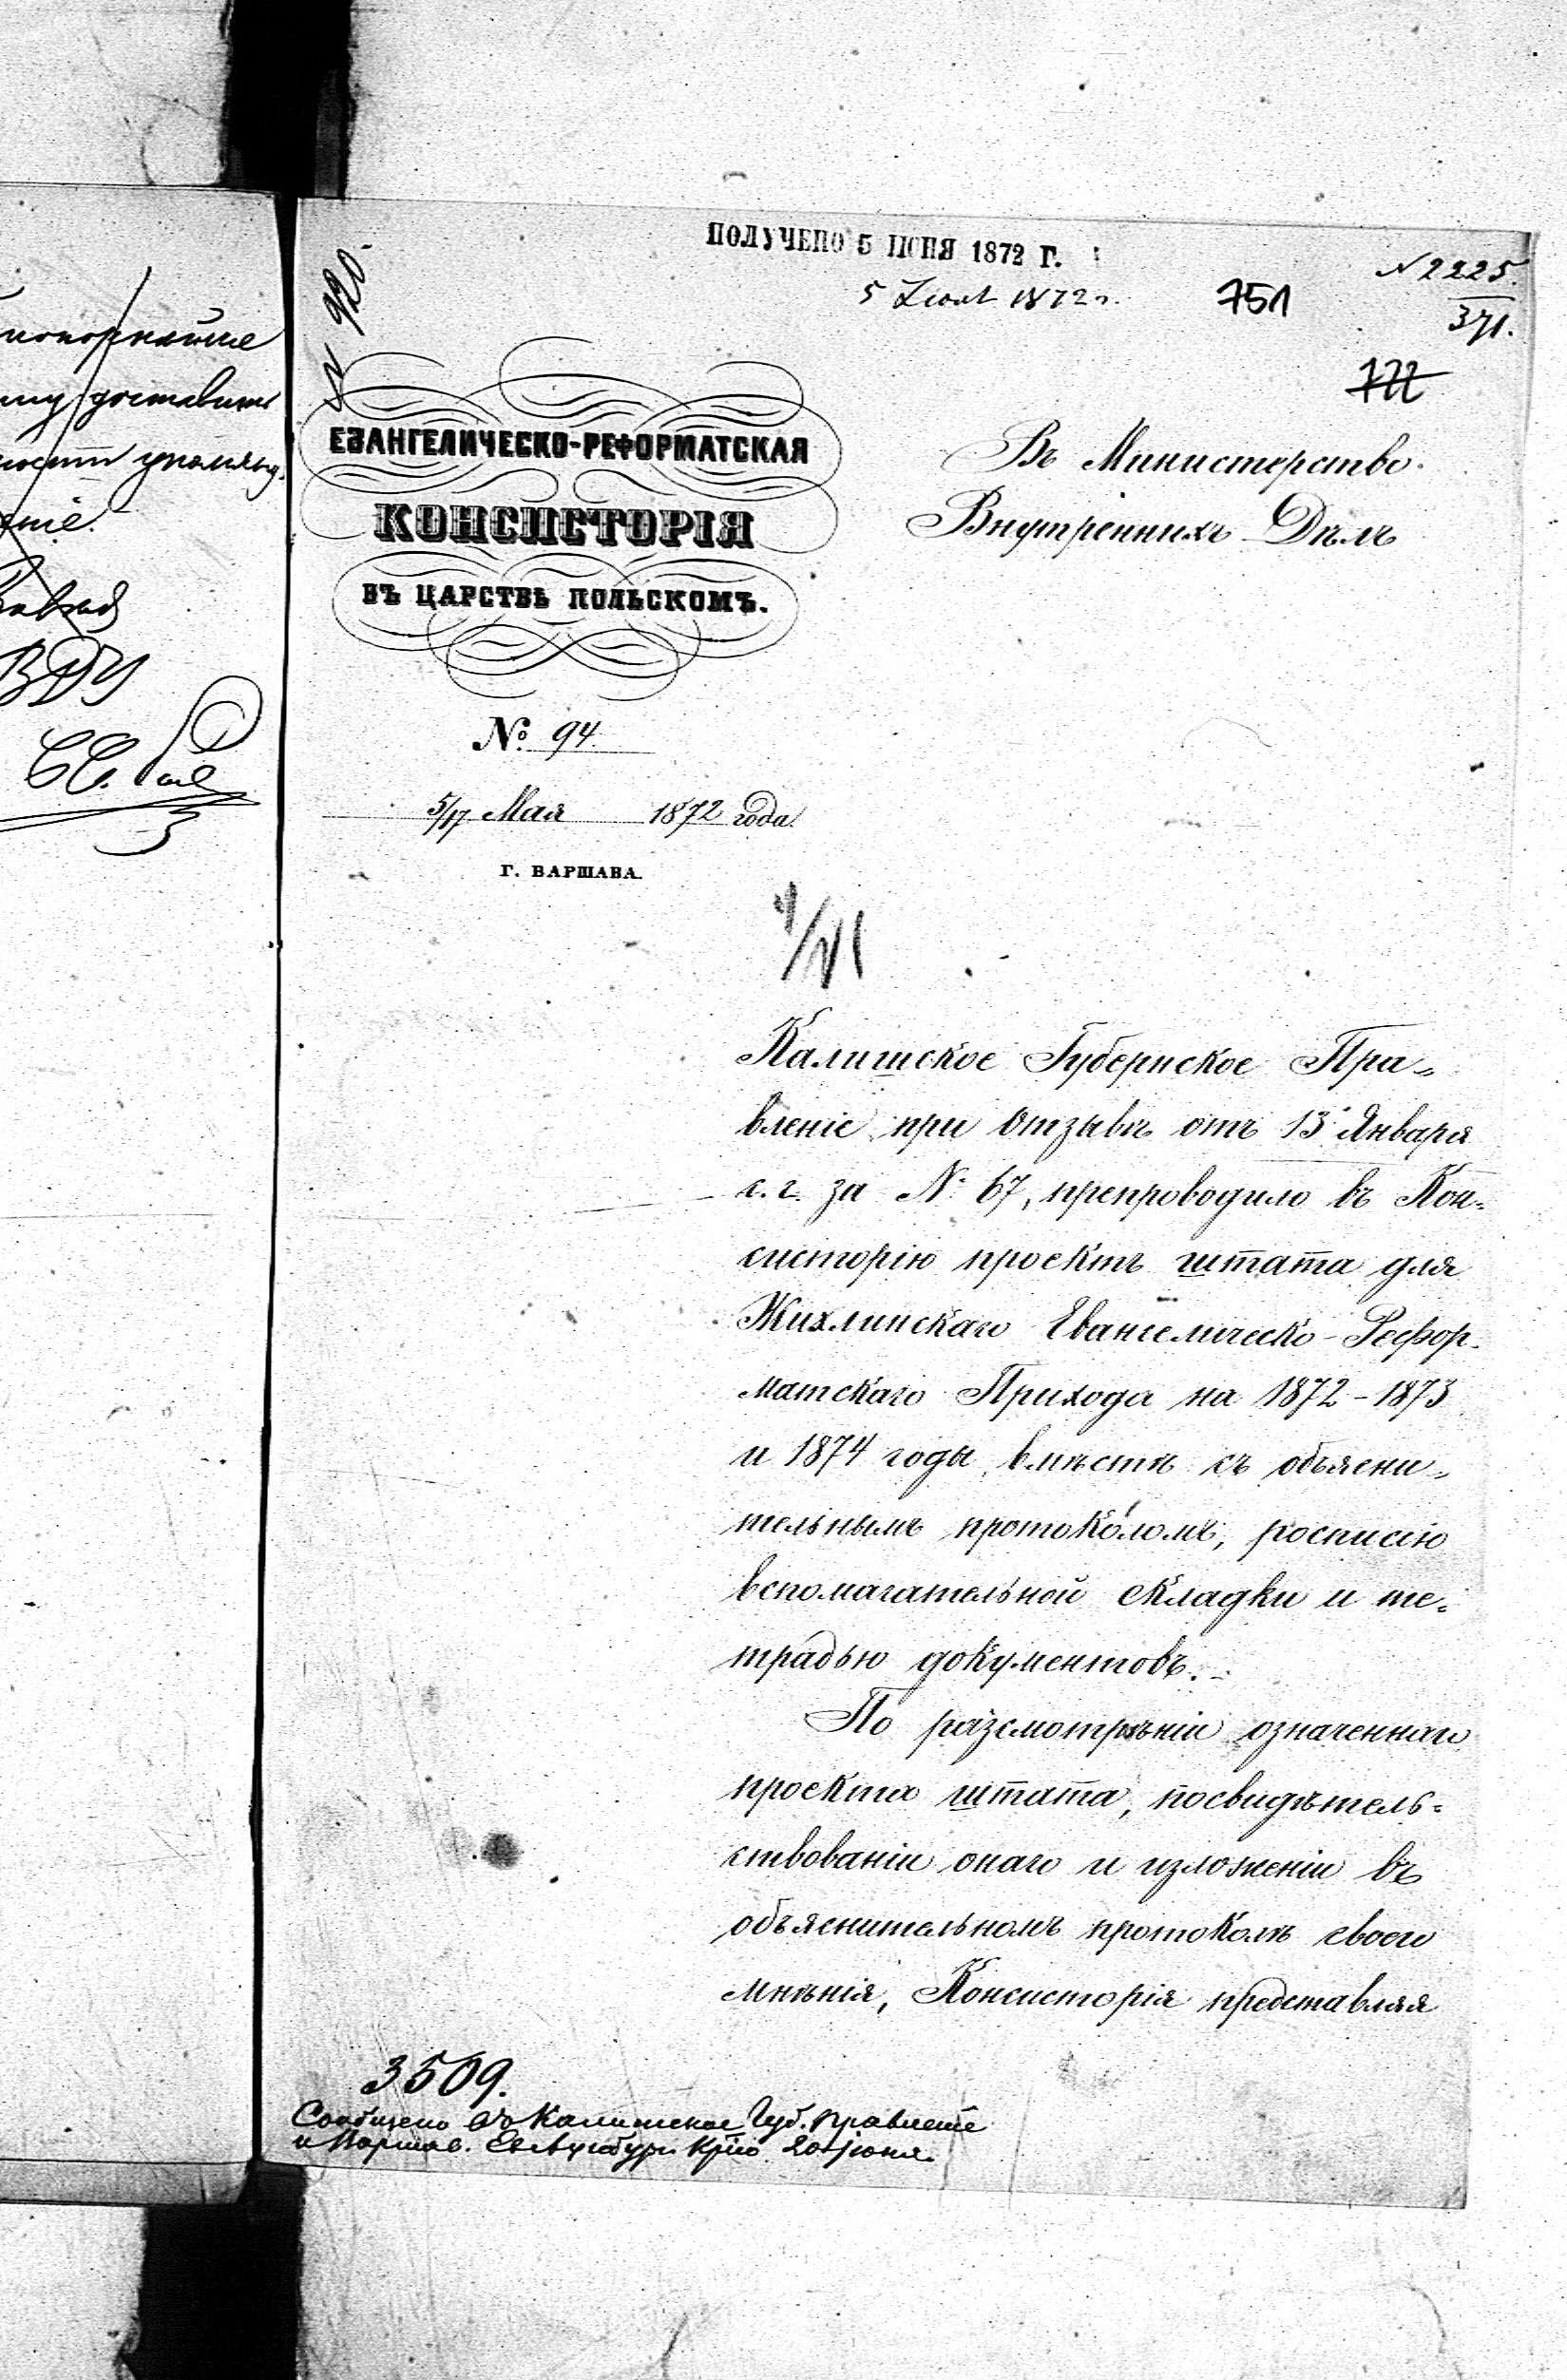 покорнѣйше
доставить
ПОЛУЧЕНО 5 ІЮНЯ 1872 Г.
1872 г.
751
N 2225.
371.
722
N 920.
ЕВАНГЕЛИЧЕСКО-РЕФОРМАТСКАЯ
КОНСИСТОРІЯ
ВЪ ЦАРСТВѢ ПОЛЬСКОМЪ.
№ 94.
5/17 Мая 1872 года.
Г. ВАРШАВА.
Въ Министерство
Внутреннихъ Дѣлъ
4/VI
Калишское Губернское Пра-
вленіе при отзывѣ отъ 13 Января
с. г. за № 67, препроводило въ Кон-
систорію проектъ штата для
Жихлинскаго Евангелическо-Рефор-
матскаго Прихода на 1872-1873
и 1874 годы вмѣстѣ съ объясни-
тельнымъ протоколомъ, росписію
вспомагательной складки и те-
традью документовъ.
По разсмотрѣніи означеннаго
проекта штата, посвидѣтель-
ствованіи онаго и изложеніи въ
объяснительномъ протоколѣ своего
мнѣнія, Консисторія представляя
3509.
Сообщено въ Калишское Губ. Правленіе
и Варшав. 20 іюня.